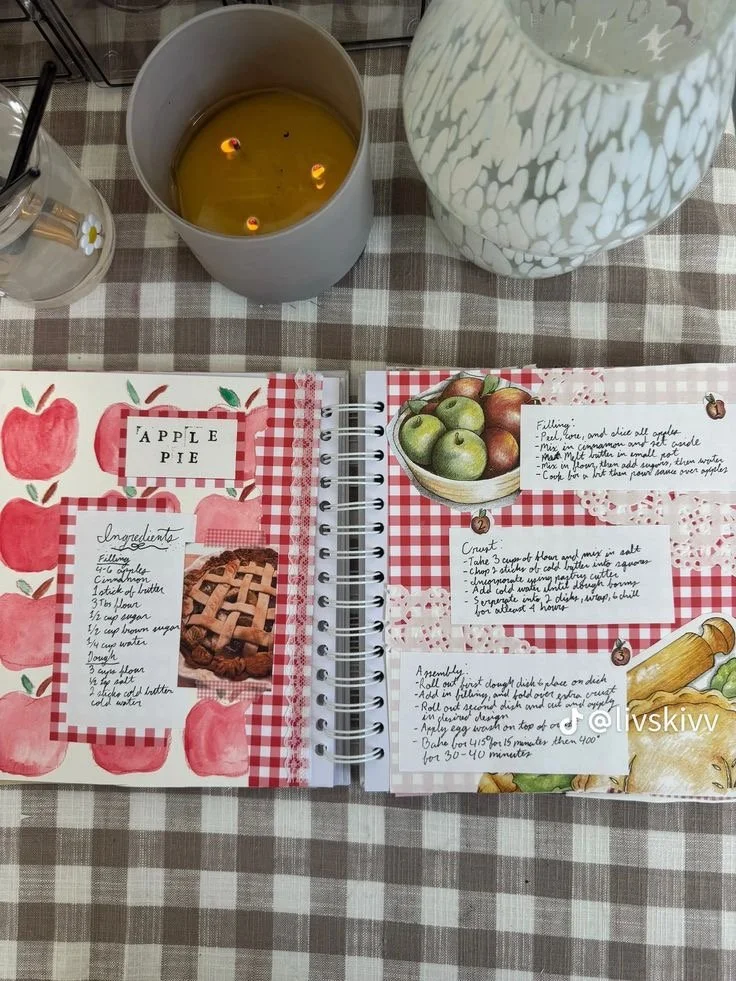 APPLE
PIE
Ingredients
Filling
4-6 apples
Cinnamon
1 stick of butter
3 Tbs flour
1/2 cup sugar
1/2 cup brown sugar
1/4 cup water
Dough
3 cups flour
1/2 tsp salt
2 sticks cold butter
cold water
Filling:
- Peel, core, and slice all apples
- Mix in cinnamon and set aside
- Melt butter in small pot
- Mix in flour, then add sugars, then water
- Cook for a bit then pour sauce over apples
2
Crust:
- Take 3 cups of flour and mix in salt
- Chop 2 sticks of cold butter into squares
- Incorporate using pastry cutter
- Add cold water until dough forms
- Serperate into 2 disks, wrap, & chill
for atleast 4 hours
3
Assembly:
- Roll out first dough disk & place on dish
- Add in filling, and fold over extra crust
- Roll out second dish and cut and apply
in desired design
- Apply egg wash on top of
- Bake for 415° for 15 minutes then 400°
for 30-40 minutes
@livskivv